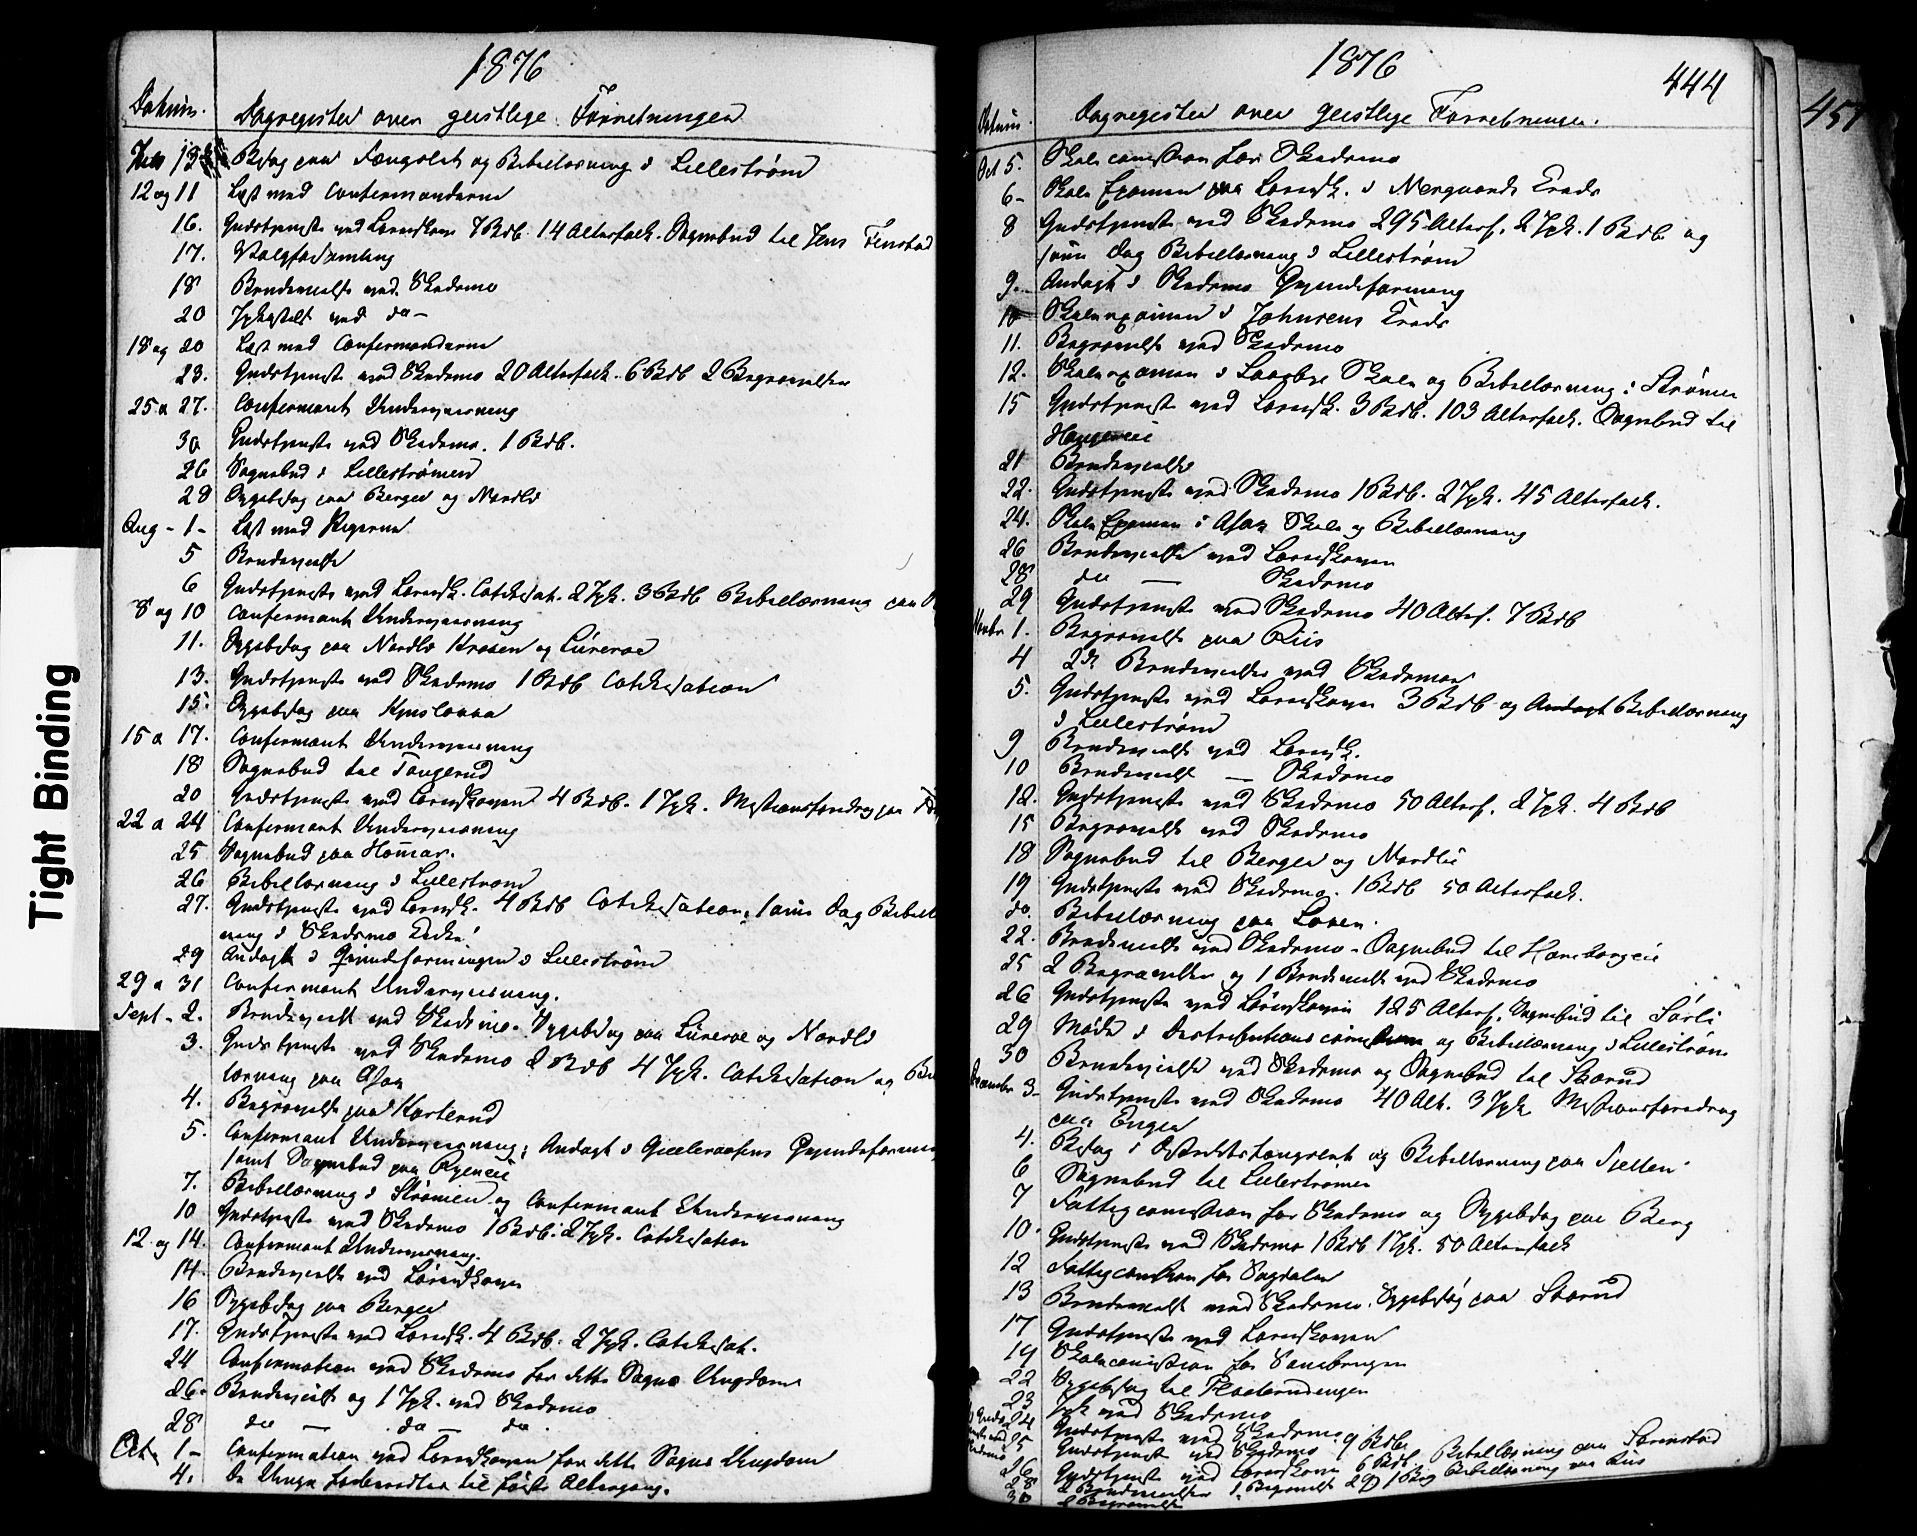 Tight Binding
1876
Datum. Dagregister over geistlige Forretninger
Juli 13 Besøg paa Fængslet og Bibellæsning i Lillestrøm
12 og 11 Læst med Confirmanderne
16. Gudstjeneste ved Lørenskogen 7 Bdb. 14 Altarfolk. Sognebud til Jens Finstad
17. Valgforsamling
18 Brudevielse ved Skedsmo
20 Jphstelt ved do-
18 og 20 Læst med Confirmanderne
23. Gudstjeneste ved Skedsmo 20 Alterfolk. 6 Bdb 2 Begravelser
25 a 27. Confirmant Undervisning
30 Gudstjeneste ved Skedsmo. 1 Bdb.
26 Sognebud i Lillestrømen
28 Sygebesøg paa Berger og Nordli
Aug - 1- Læst med Pigerne
5 Brudevielse
6 Gudstjeneste ved Lørensk. Catechisat. 2 Jph. 3 Bdb Bibellæsning paa
8 og 10 Confirmant Undervisning
11. Sygebesøg paa Nordli Kroken og Lureroe
13. Gudstjeneste ved Skedsmo 1 Bdb Catechisation
15. Sygebesøg paa
15 a 17. Confirmant Undervisning
18 Sognebud til Tangerud
20 Gudstjeneste ved Lørenskogen 4 Bdb. 1 Jph. Missionsforedrag paa
22 a 24 Confirmant Undervisning
25 Sognebud paa Homar.
26 Bibellæsning i Lillestrøm
27. Gudstjeneste ved Lørensk. 4 Bdb Catechisation, samme Dag Bibell
ning i Skedsmo Kirke!
29 Andagt i Qvindeforeningen i Lillestrøm
29 a 31 Confirmant Undervisning.
Sept - 2. Brudevielse ved Skedsmo. Sygebesøg paa Lureroe og Nordli
3. Gudstjeneste ved Skedsmo 2 Bdb 4 Jph. Catechisation og Bi
læsning paa Asak
4. Begravelse paa Korterud
5. Confirmant Undervisning; Andagt i Qvindeforening
samt Sognebud paa
7. Bibellæsning i Strømen og Confirmant Undervisning
10 Gudstjeneste ved Skedsmo 1 Bdb. 2 Jph. Catechisation
12 og 14. Confirmant Undervisning.
14 Brudevielse ved Lørenskogen
16 Sygebesøg paa Berger
17. Gudstjeneste ved Lørensk. 4 Bdb. 2 Jph. Catechisat.
24 Confirmation ved Skedsmo for dette Sogns Ungdom
26. Brudevielse og 1 Jph. ved Skedsmo
28 do - do - do
Oct. 1- Confirmation ved Lørenskogen for dette Sogns Ungdom
4. De Unge forberedtes til første Altergang.
1876
444
457
Datum. Dagregister over geistlige Forretninger.
Oct 5. Skolecomission for Skedsmo
6- Skole Examen paa Lørensk. i Nergaards Kreds
8 Gudstjeneste ved Skedsmo 295 Alterf. 2 Jph. 1 Bdb og
samme Dag Bibellæsning i Lillestrøm
9. Andagt i Skedsmo Qvindeforening
10 Skoleexamen i Johnsens Kreds
11. Begravelse ved Skedsmo
12. Skoleexamen i Skole og Bibellæsning i Strømen
15 Gudstjeneste ved Lørensk. 3 Bdb. 103 Alterfolk. Sognebud til
21 Brudevielse
22. Gudstjeneste ved Skedsmo 1 Bdb. 2 Jph. 45 Alterfolk.
24. Skole Examen i Asak Skole og Bibellæsning
26 Brudevielse ved Lørenskogen
28 do - Skedsmo
29 Gudstjeneste ved Skedsmo 40 Alterf. 7 Bdb
Novbr 1. Begravelse paa Riis
4 2de Brudevielser ved Skedsmo
5. Gudstjeneste ved Lørenskogen 3 Bdb og Andagt Bibellæsning
i Lillestrøm
9 Brudevielse ved Lørensk.
10 Brudevielse - Skedsmo
12. Gudstjeneste ved Skedsmo 50 Alterf. 2 Jph. 4 Bdb
15 Begravelse ved Skedsmo
18 Sognebud til Berger og Nordlie
19 Gudstjeneste ved Skedsmo. 1 Bdb 50 Alterfolk.
do. Bibellæsning paa Loren.
22. Brudevielse ved Skedsmo - Sognebud til Hanaborgeie
25 2 Begravelser og 1 Brudevielse ved Skedsmo
26 Gudstjeneste ved Lørenskogen 125 Alterf. Sognebud til Sørli
29 Møde i Distributionscomission og Bibellæsning i Lillestrøm
30 Brudevielse ved Skedsmo og Sognebud til Skarud
December 3- Gudstjeneste ved Skedsmo 40 Alt. 3 Jph. Missionsforedrag
paa Enger
4. Besøg i Distriktsfængslet og Bibellæsning paa Fjellen
6 Sognebud til Lillestrømen
7 Fattigcomission for Skedsmo og Sygebesøg paa Berg
10. Gudstjeneste ved Skedsmo 1 Bdb 1 Jph. 50 Alterfolk
12 Fattigcomission for Sagdalen
13 Brudevielse ved Skedsmo. Sygebesøg paa Skarud
17 Gudstjeneste ved Lørenskogen
19 Skolecomission for
22 Sygebesøg til Flaterudengen
23 Jph ved Skedsmo
24 Gudstjeneste ved Skedsmo
25 Gudstjeneste ved Skedsmo 9 Bdb
26 Gudstjeneste ved Lørenskogen 6 Bdb Bibellæsning paa
28 2 Brudevielser 1 Begravelse 29 1 Beg Bibellæsning paa Riis
30 2 Begravelser